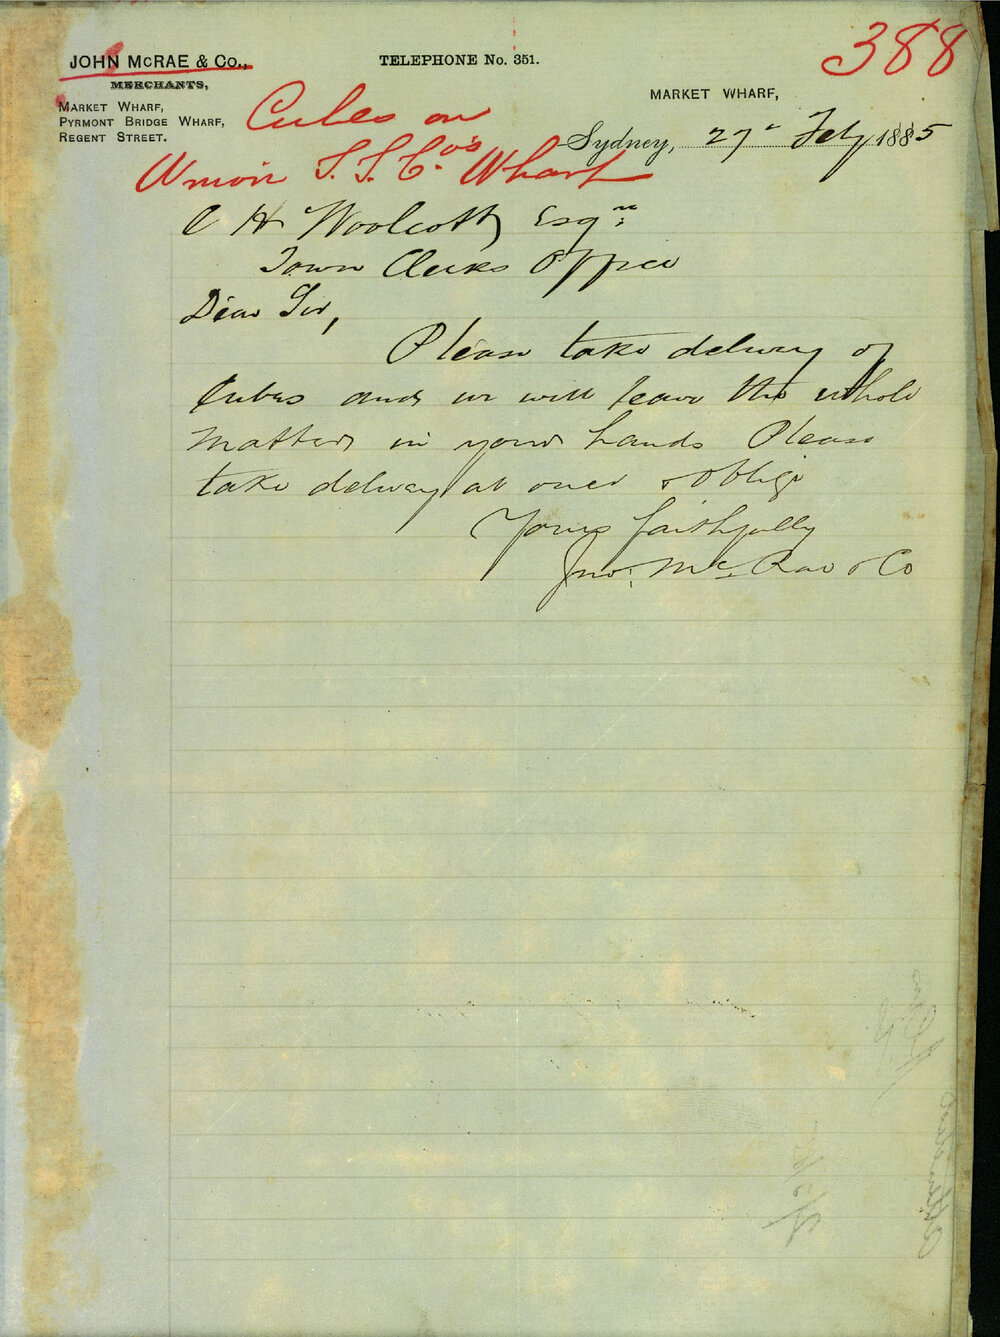 388
JOHN McRAE & Co.,
MERCHANTS,
MARKET WHARF,
PYRMONT BRIDGE WHARF,
REGENT STREET.
TELEPHONE No. 351.
MARKET WHARF,
Sydney, 27 Feby 1885
Cubes on
Union S.S.Co's Wharf
C H Woolcott Esqre
Town Clerks Office
Dear Sir,
Please take delivery of
Cubes and we will leave the whole
matter in your hands Please
take delivery at once & oblige
Yours faithfully
Jno. McRae & Co